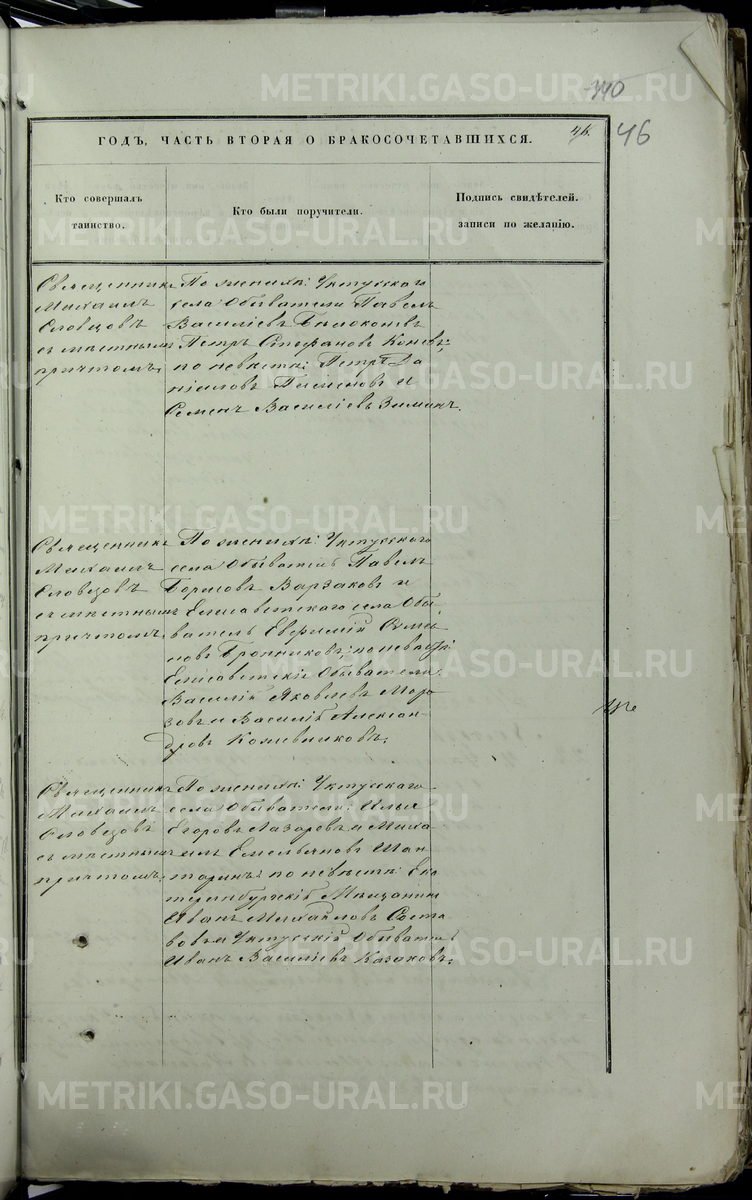 340
46
46.
ГОДЪ, ЧАСТЬ ВТОРАЯ О БРАКОСОЧЕТАВШИХСЯ.
Кто совершалъ
таинство.
Кто были поручители.
Подпись свидѣтелей.
записи по желанію.
Священникъ
Михаилъ
Словцовъ
съ мѣстнымъ
причтомъ.
По женихѣ: Уктусскаго
села Обыватели Павелъ
Василіевъ
Петръ Стефановъ Коневъ;
по невѣстѣ: Петръ Да
ніиловъ Пименовъ и
Семенъ Василіевъ Зиминъ.
Священникъ
Михаилъ
Словцовъ
съ мѣстнымъ
причтомъ.
По женихѣ: Уктусскаго
села Обыватель Павелъ
Борисовъ Варзаковъ и
Елисаветскаго села Обы
ватель Евфимій Симе
новъ Бронниковъ; по невѣстѣ:
Елисаветскіе Обыватели:
Василій Яковлевъ Моро
зовъ и Василій Алексан-
дровъ Кожевниковъ;
Священникъ
Михаилъ
Словцовъ
съ мѣстнымъ
причтомъ.
По женихѣ: Уктусскаго
села Обыватели: Илья
Егоровъ Лазаревъ и Миха
илъ Емельяновъ Шап
торинъ: по невѣстѣ: Ека
теринбургскій Мѣщанинъ
Иванъ Михайловъ
и Уктусскій Обыватель
Иванъ Василіевъ Казаковъ;
METRIKI.GASO-URAL.RU